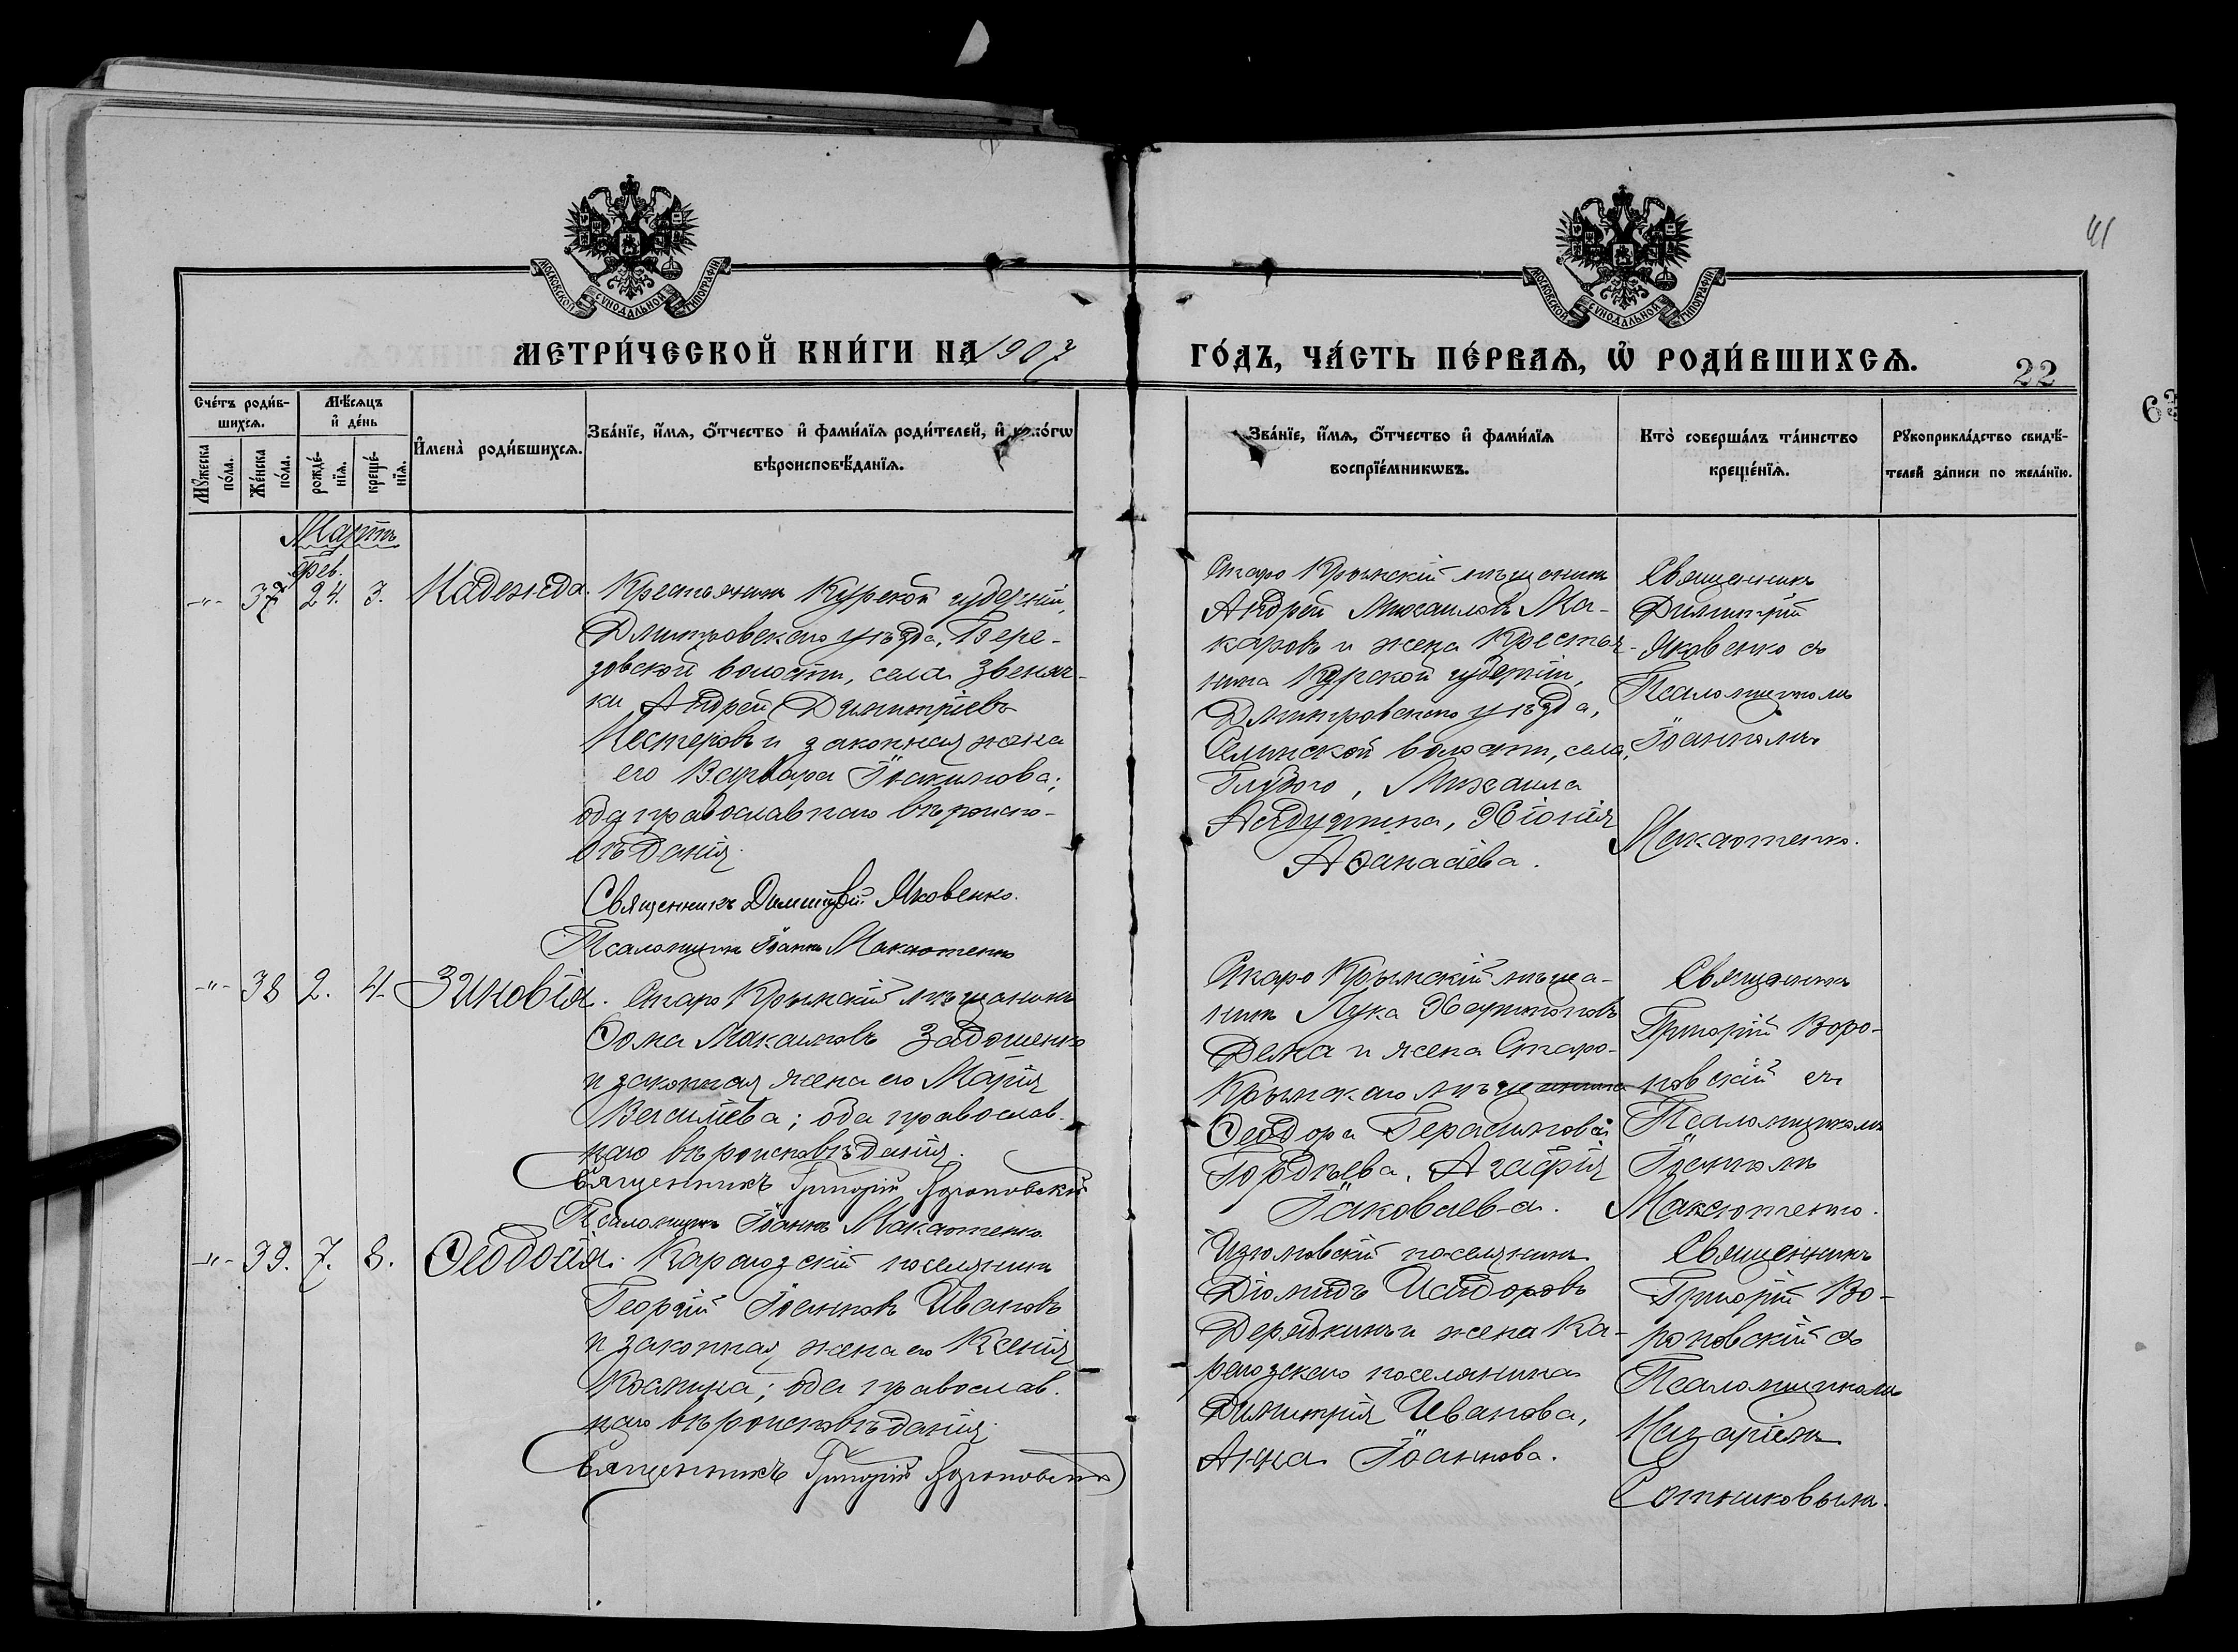 41
МОСКОВСКОЙ СѴНОДАЛЬНОЙ ТИПОГРАФІИ
МОСКОВСКОЙ СѴНОДАЛЬНОЙ ТИПОГРАФІИ
МЕТРИ́ЧЕСКОЙ КНИ́ГИ НА 1907
ГО́ДЪ, ЧА́СТЬ ПЕ́РВАѦ, Ѡ҆ РОДИ́ВШИХСѦ.
22
63
Сче́тъ роди́в-
шихсѧ.
Мꙋ́жеска по́ла.
Же́нска по́ла.
Мѣ́сѧцъ
и҆ де́нь
рожде́-
нїѧ.
креще́-
нїѧ.
И҆мена̀ роди́вшихсѧ.
Зва́нїе, и҆́мѧ, ѻ҆́тчество и҆ фами́лїѧ роди́телей, и҆ како́гѡ
вѣроисповѣ́данїѧ.
Зва́нїе, и҆́мѧ, ѻ҆́тчество и҆ фами́лїѧ
воспрїе́мникѡвъ.
Кто̀ соверша́лъ та́инство
креще́нїѧ.
Рꙋкоприкла́дство свидѣ́-
телей за́писи по жела́нїю.
Мартъ
Фев.
-"- 37 24. 3. Надежда.
Крестьянинъ Курской губерніи,
Дмитровскаго уѣзда, Бере-
зовской волости, села Звеняч-
ки, Андрей Димитріевъ
Нестеровъ и законная жена
его Варвара Іоакимова;
оба православнаго вѣроиспо-
вѣданія.
Священникъ Димитрій Яковенко.
Псаломщикъ Іоаннъ Макаютенко
Старо Крымскій мѣщанинъ
Андрей Михаиловъ Ма-
каровъ и жена Крестья-
нина Курской губерніи,
Дмитровскаго уѣзда,
Селинской волости, села
Глубого, Михаила
Хіонія
Аѳанасіева.
Священникъ
Димитрій
Яковенко съ
Псаломщикомъ
Іоанномъ
Макаютенко.
-"- 38 2. 4. Зиновія.
Старо Крымскій мѣщанинъ
Ѳома Максимовъ
и законная жена его Марія
Васильева; оба православ-
наго вѣроисповѣданія.
Священникъ Григорій Вороновскій
Псаломщикъ Іоаннъ Макаютенко.
Старо Крымскій мѣща-
нинъ Лука Харитоновъ
Дежа и жена Старо-
Крымскаго мѣщанина
Ѳеодора Герасимова
Гордѣева, Агафія
Іаковлева.
Священникъ
Григорій Воро-
новскій съ
Псаломщикомъ
Іоанномъ
Макаютенко.
-"- 39. 7. 8. Ѳеодосія.
Карагозскій поселянинъ
Георгій Іоанновъ Ивановъ
и законная жена его Ксенія
Космина; оба православ-
наго вѣроисповѣданія.
Священникъ Григорій Вороновскій
Изюмовскій поселянинъ
Діомидъ Исидоровъ
Дерябкинъ и жена Ка-
рагозскаго поселянина
Димитрія Иванова,
Анна Іоаннова.
Священникъ
Григорій Во-
роновскій съ
Псаломщикомъ
Назаріемъ
Сотниковымъ.